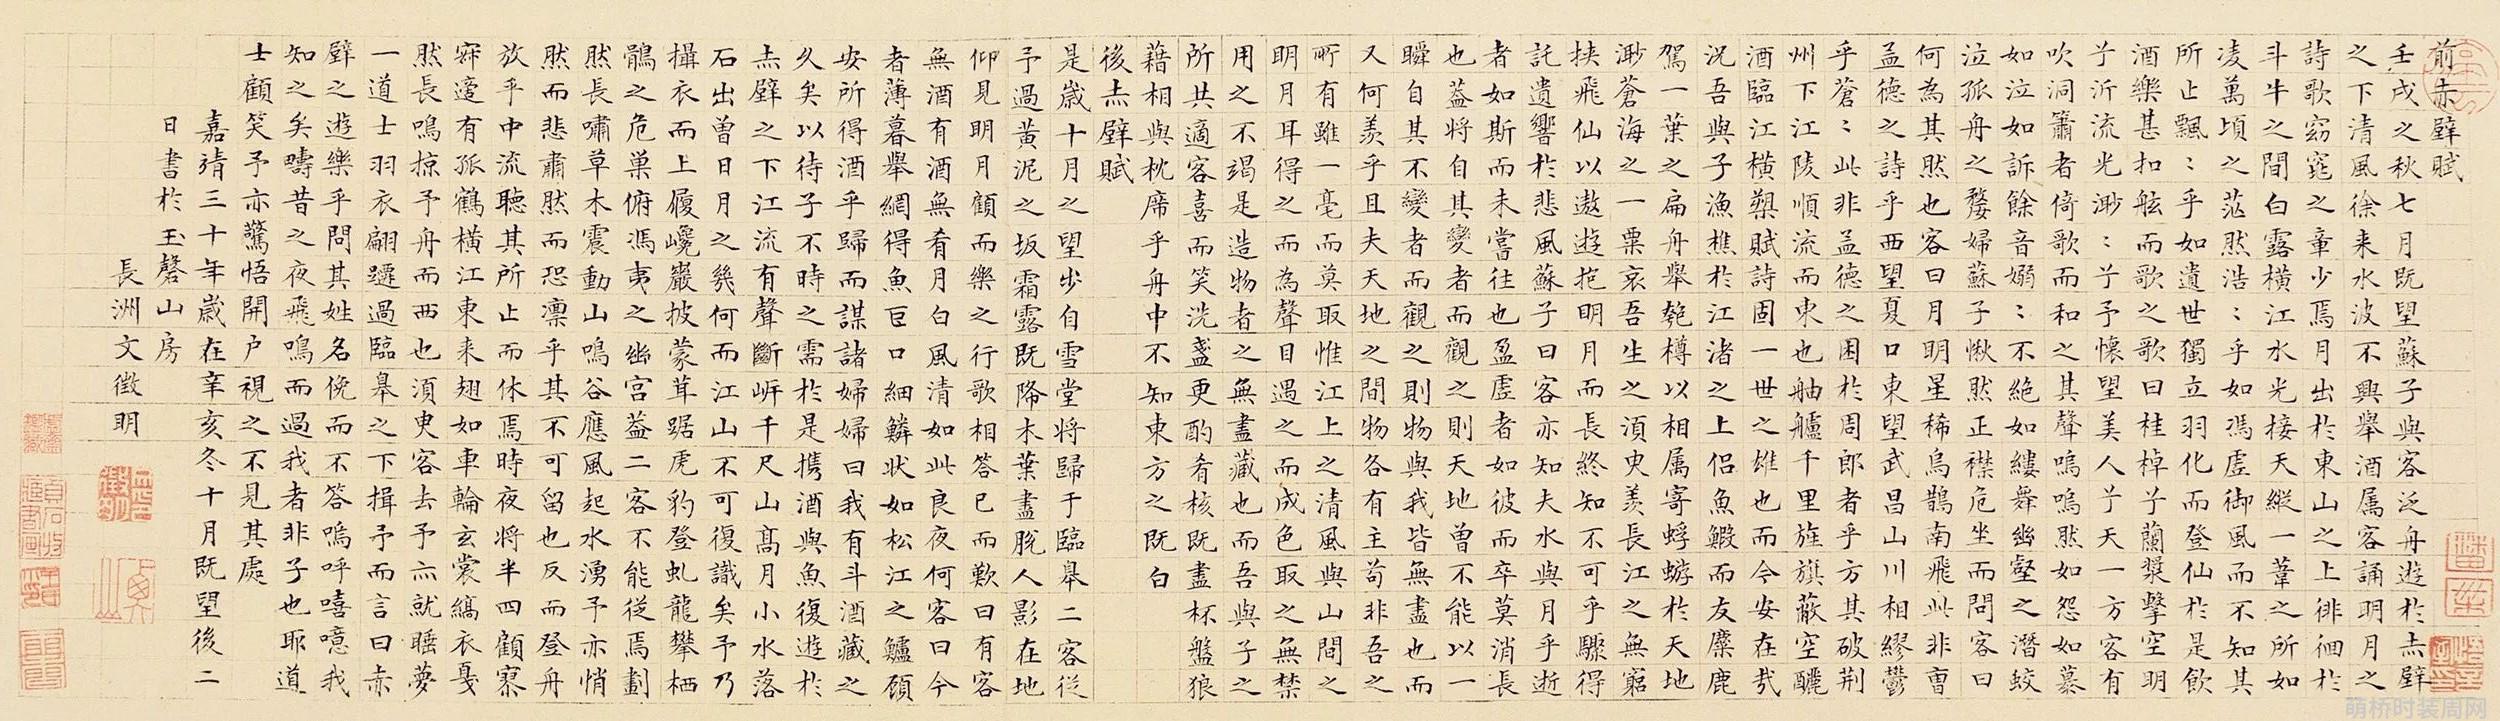 前赤壁賦
壬戌之秋七月既望蘇子與客泛舟遊於赤壁
之下清風徐来水波不興舉酒属客誦明月之
詩歌窈窕之章少焉月出於東山之上徘徊於
斗牛之間白露横江水光接天縱一葦之所如
凌萬頃之茫然浩〻乎如馮虚御風而不知其
所止飄〻乎如遺世獨立羽化而登仙於是飲
酒樂甚扣舷而歌之歌曰桂棹兮蘭槳擊空明
兮泝流光渺〻兮予懷望美人兮天一方客有
吹洞簫者倚歌而和之其聲嗚嗚然如怨如慕
如泣如訴餘音嫋〻不絶如縷舞幽壑之潛蛟
泣孤舟之嫠婦蘇子愀然正襟危坐而問客曰
何為其然也客曰月明星稀烏鵲南飛此非曹
孟德之詩乎西望夏口東望武昌山川相繆鬱
乎蒼〻此非孟德之困於周郎者乎方其破荆
州下江陵順流而東也舳艫千里旌旗蔽空釃
酒臨江横槊賦詩固一世之雄也而今安在哉
況吾與子漁樵於江渚之上侣魚鰕而友麋鹿
駕一葉之扁舟舉匏樽以相属寄蜉蝣於天地
渺蒼海之一粟哀吾生之須臾羨長江之無窮
挟飛仙以遨遊抱明月而長終知不可乎驟得
託遺響於悲風蘇子曰客亦知夫水與月乎逝
者如斯而未嘗往也盈虚者如彼而卒莫消長
也蓋將自其變者而觀之則天地曾不能以一
瞬自其不變者而觀之則物與我皆無盡也而
又何羨乎且夫天地之間物各有主苟非吾之
所有雖一毫而莫取惟江上之清風與山間之
明月耳得之而為聲目遇之而成色取之無禁
用之不竭是造物者之無盡藏也而吾與子之
所共適客喜而笑洗盞更酌肴核既盡杯盤狼
藉相與枕席乎舟中不知東方之既白
後赤壁賦
是歲十月之望步自雪堂将歸于臨皋二客従
予過黄泥之坂霜露既降木葉盡脱人影在地
仰見明月顧而樂之行歌相答已而歎曰有客
無酒有酒無肴月白風清如此良夜何客曰今
者薄暮舉網得魚巨口細鱗状如松江之鱸顧
安所得酒乎歸而謀諸婦婦曰我有斗酒藏之
久矣以待子不時之需於是携酒與魚復遊於
赤壁之下江流有聲斷岸千尺山髙月小水落
石出曾日月之幾何而江山不可復識矣予乃
攝衣而上履巉巖披蒙茸踞虎豹登虬龍攀栖
鶻之危巢俯馮夷之幽宫蓋二客不能従焉劃
然長嘯草木震動山鳴谷應風起水湧予亦悄
然而悲肅然而恐凛乎其不可留也反而登舟
放乎中流聴其所止而休焉時夜将半四顧寂
寥適有孤鶴横江東来翅如車輪玄裳縞衣戛
然長鳴掠予舟而西也湏臾客去予亦就睡夢
一道士羽衣翩躚過臨皋之下揖予而言曰赤
壁之遊樂乎問其姓名俛而不答嗚呼嘻噫我
知之矣疇昔之夜飛鳴而過我者非子也耶道
士顧笑予亦驚悟開户視之不見其處
嘉靖三十年歲在辛亥冬十月既望後二
日書於玉磬山房
長洲文徵明
萌桥时装周网